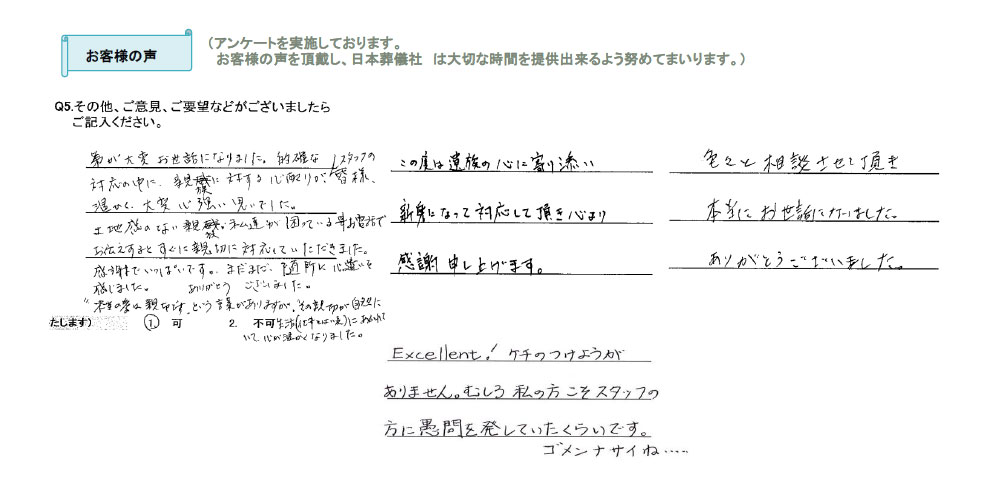 お客様の声
(アンケートを実施しております。
お客様の声を頂戴し、日本葬儀社 は大切な時間を提供出来るよう努めてまいります。)
Q5.その他、ご意見、ご要望などがございましたら
ご記入ください。
弟が大変お世話になりました。的確なスタッフの
対応の中に、親族に対する心配りが、皆様、
温かく、大変心強い思いでした。
土地感のない親族、私達が困っている時お電話で
お伝えするとすぐに親切に対応していただきました。
感謝でいっぱいです。まだまだ、随所に心遣いを
感じました。 ありがとうございました。
という言葉がありますが、その親切が自然に
たします) ① 可 2. 不可
いて心が温かくなりました。
この度は遺族の心に寄り添い
親身になって対応して頂き心より
感謝申し上げます。
色々と相談させて頂き
本当にお世話になりました。
ありがとうございました。
Excellent! ケチのつけようが
ありません。むしろ私の方こそスタッフの
方に愚問を発していたくらいです。
ゴメンナサイね……